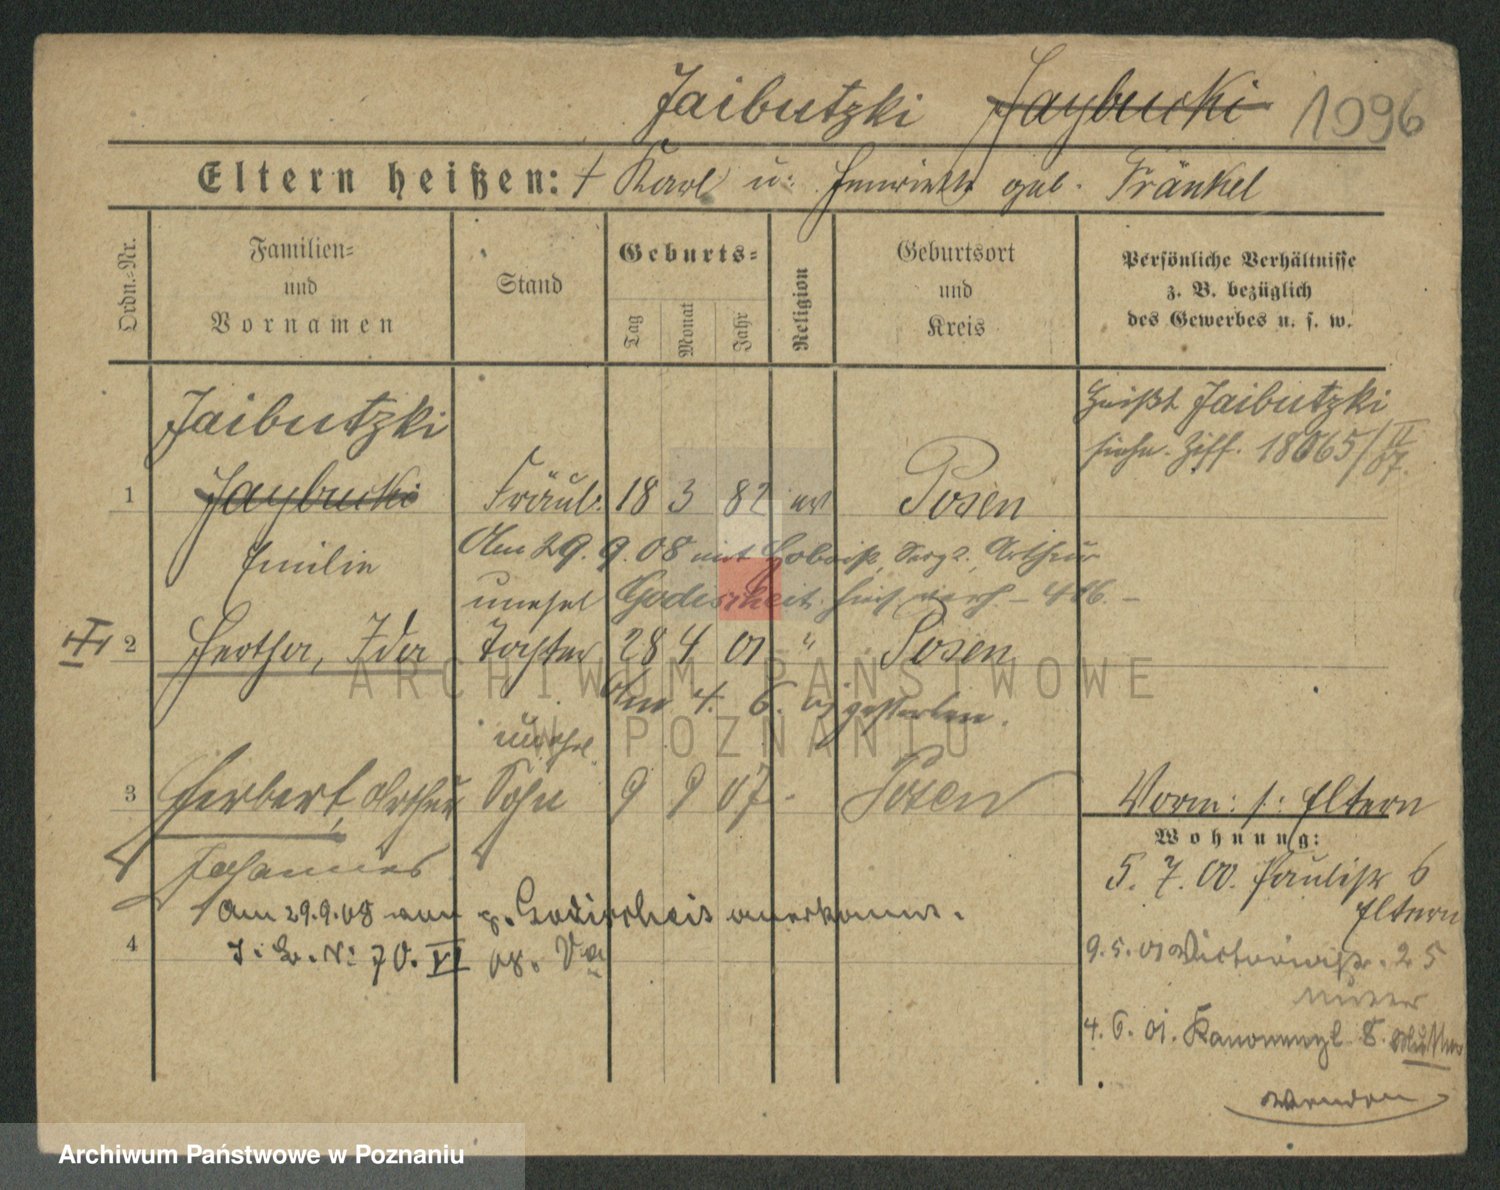 Jaibutzki Jaybucki 1996
Eltern heißen: † Karl u: Henriette geb. Fränkel
Ordn.-Nr.
Familien-
und
Vornamen
Stand
Geburts-
Tag
Monat
Jahr
Religion
Geburtsort
und
Kreis
Persönliche Verhältnisse
z. B. bezüglich
des Gewerbes u. s. w.
Jaibutzki
heißt Jaibutzki
siehe Ziff. 18065/II 07.
1 Jaybucki Fräul. 18 3 82 ev Posen
Emilie
Am 29. 9. 08 mit Arthur
unehel
2 Hertha, Ida Tochter 28 4 01 " Posen
Am 4. 6. 01 gestorben.
unehel.
3 Herbert, Arthur Sohn 9 9 07. Posen
Johannes
Vorm: s: Eltern
Wohnung:
5. 7. 00. Paulistr 6
Eltern
Am 29.9.08 von anerkannt.
4 J. No 70. VI 08.
9. 5. 01 Victoriastr. 25
4. 6. 01. Kanonenpl. 8. Mutter
wenden
ARCHIWUM PAŃSTWOWE
W POZNANIU
Archiwum Państwowe w Poznaniu